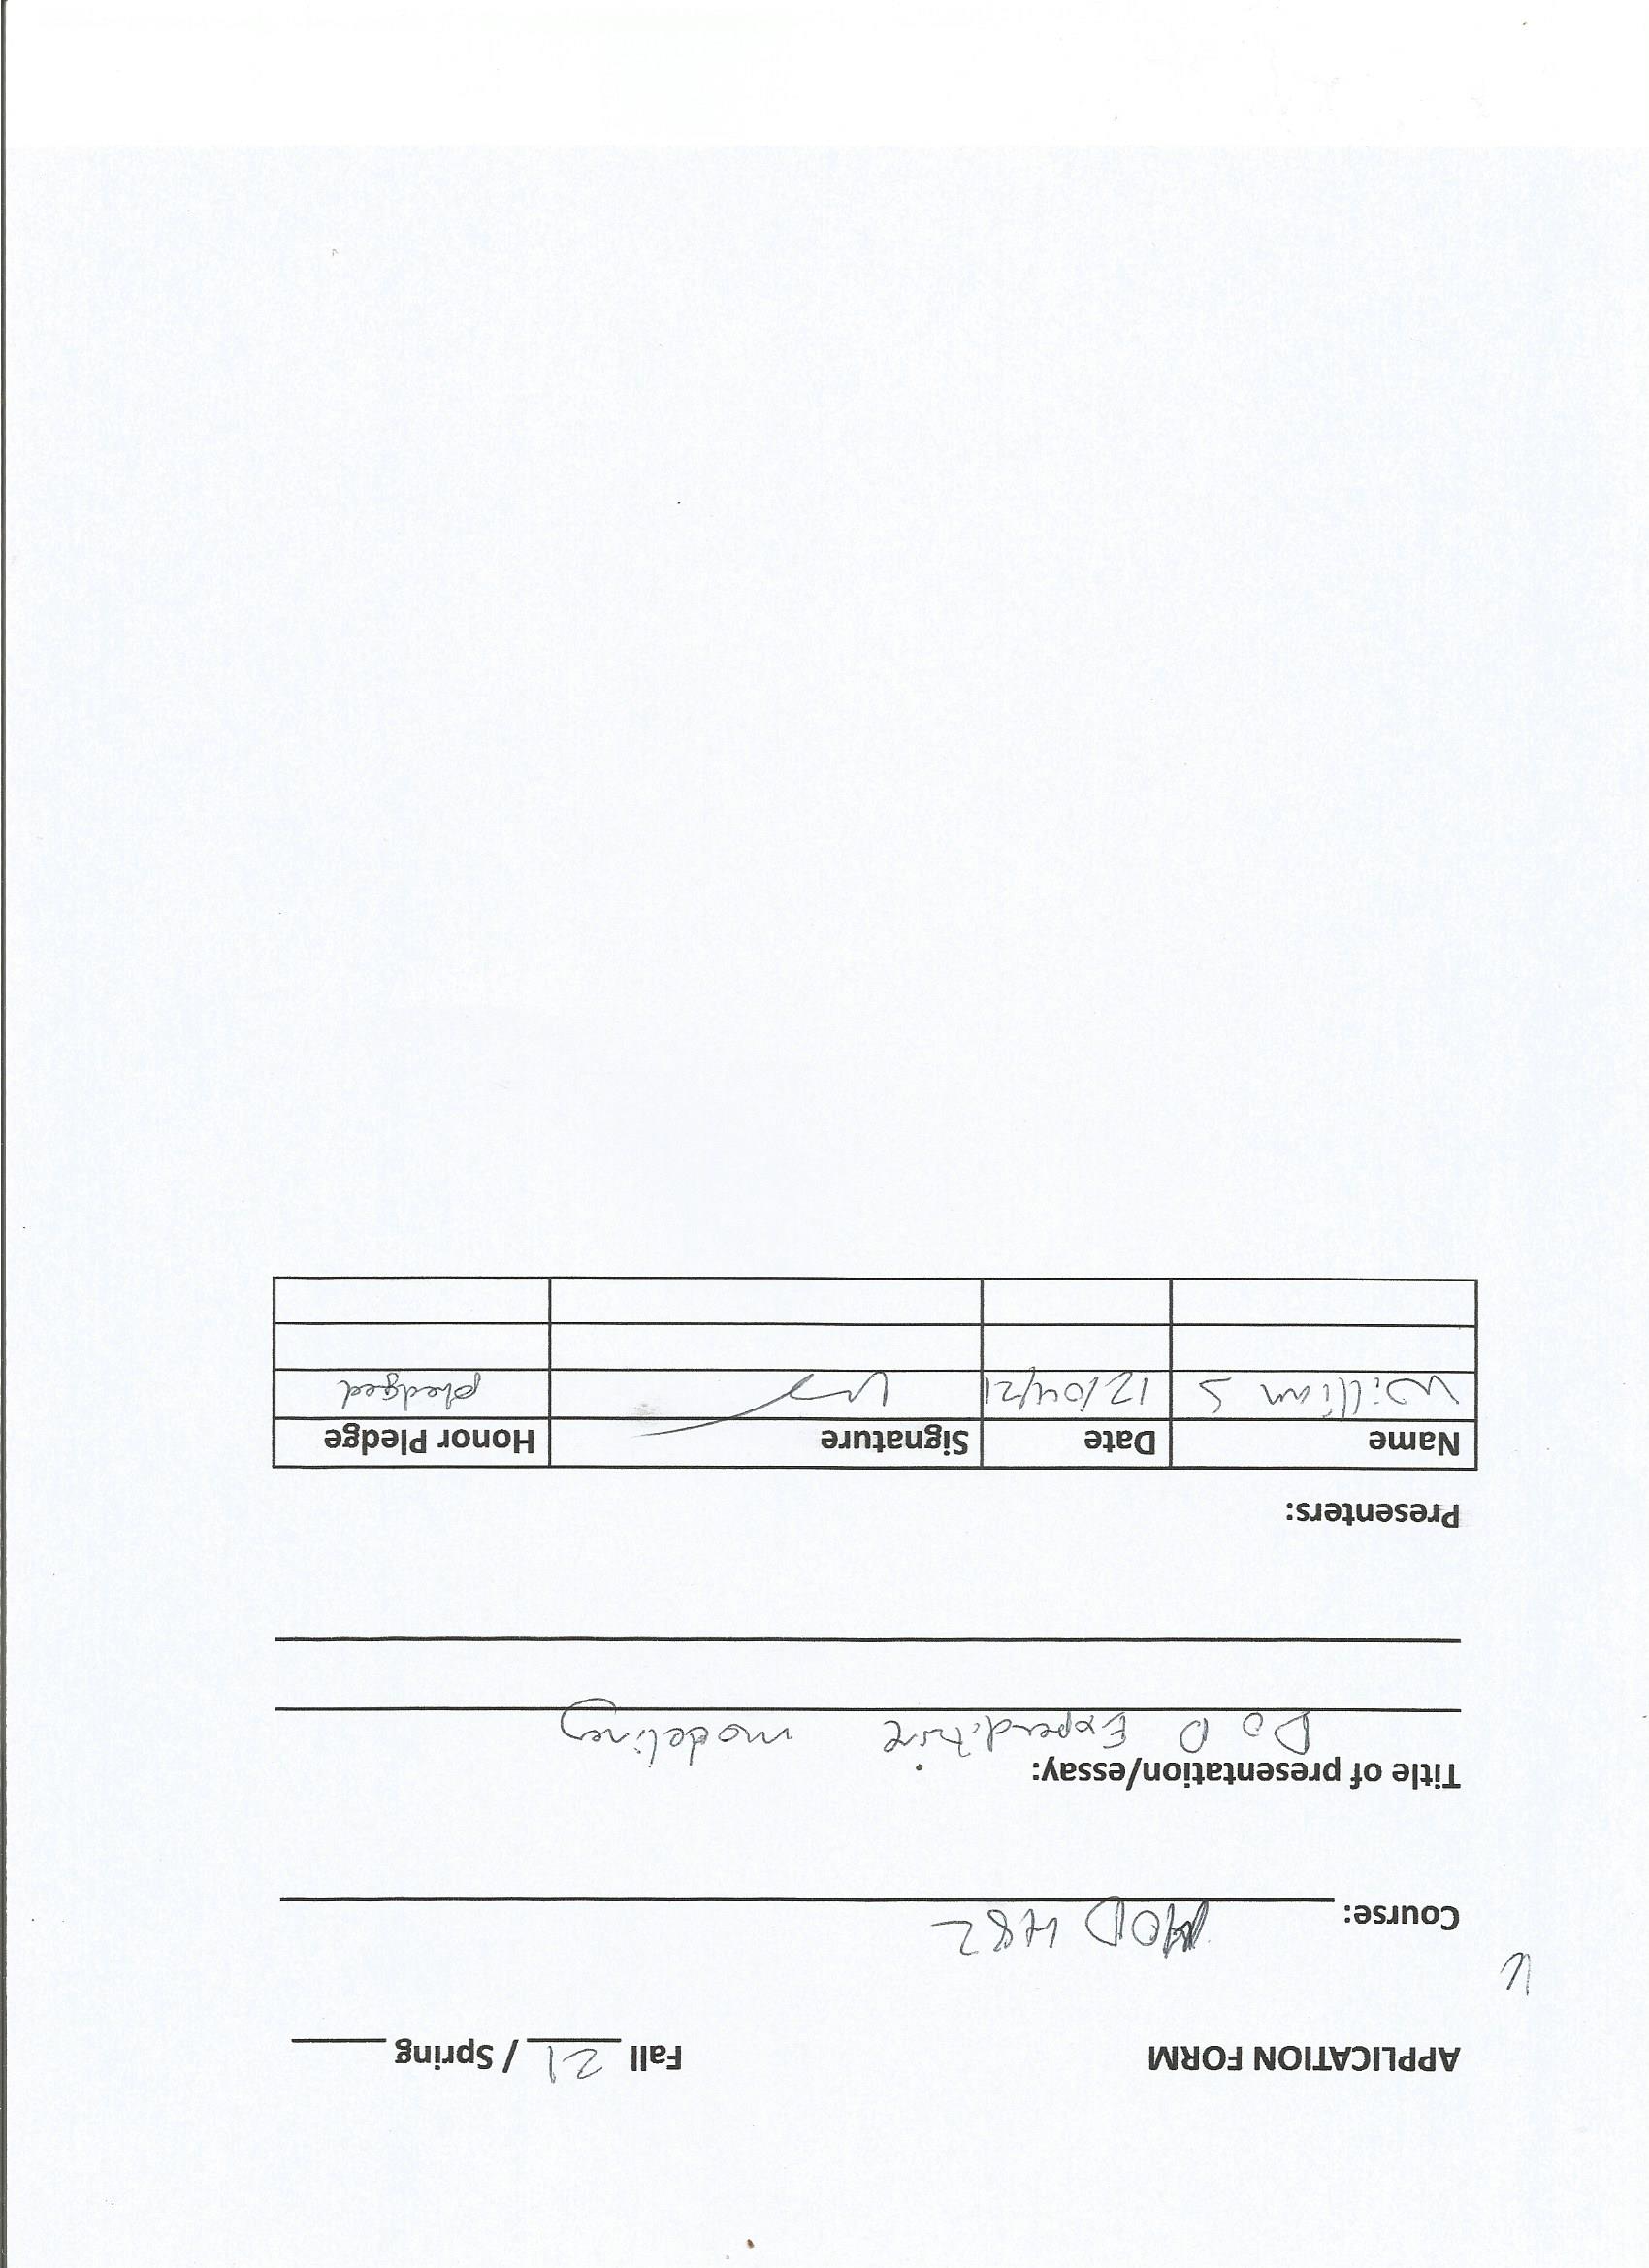 APPLICATION FORM Fall 21 / Spring _____
Course: MOD 482
Title of presentation/essay:
DoD Expenditure modeling
Presenters:
Name Date Signature Honor Pledge
William S 12/04/21 pledged